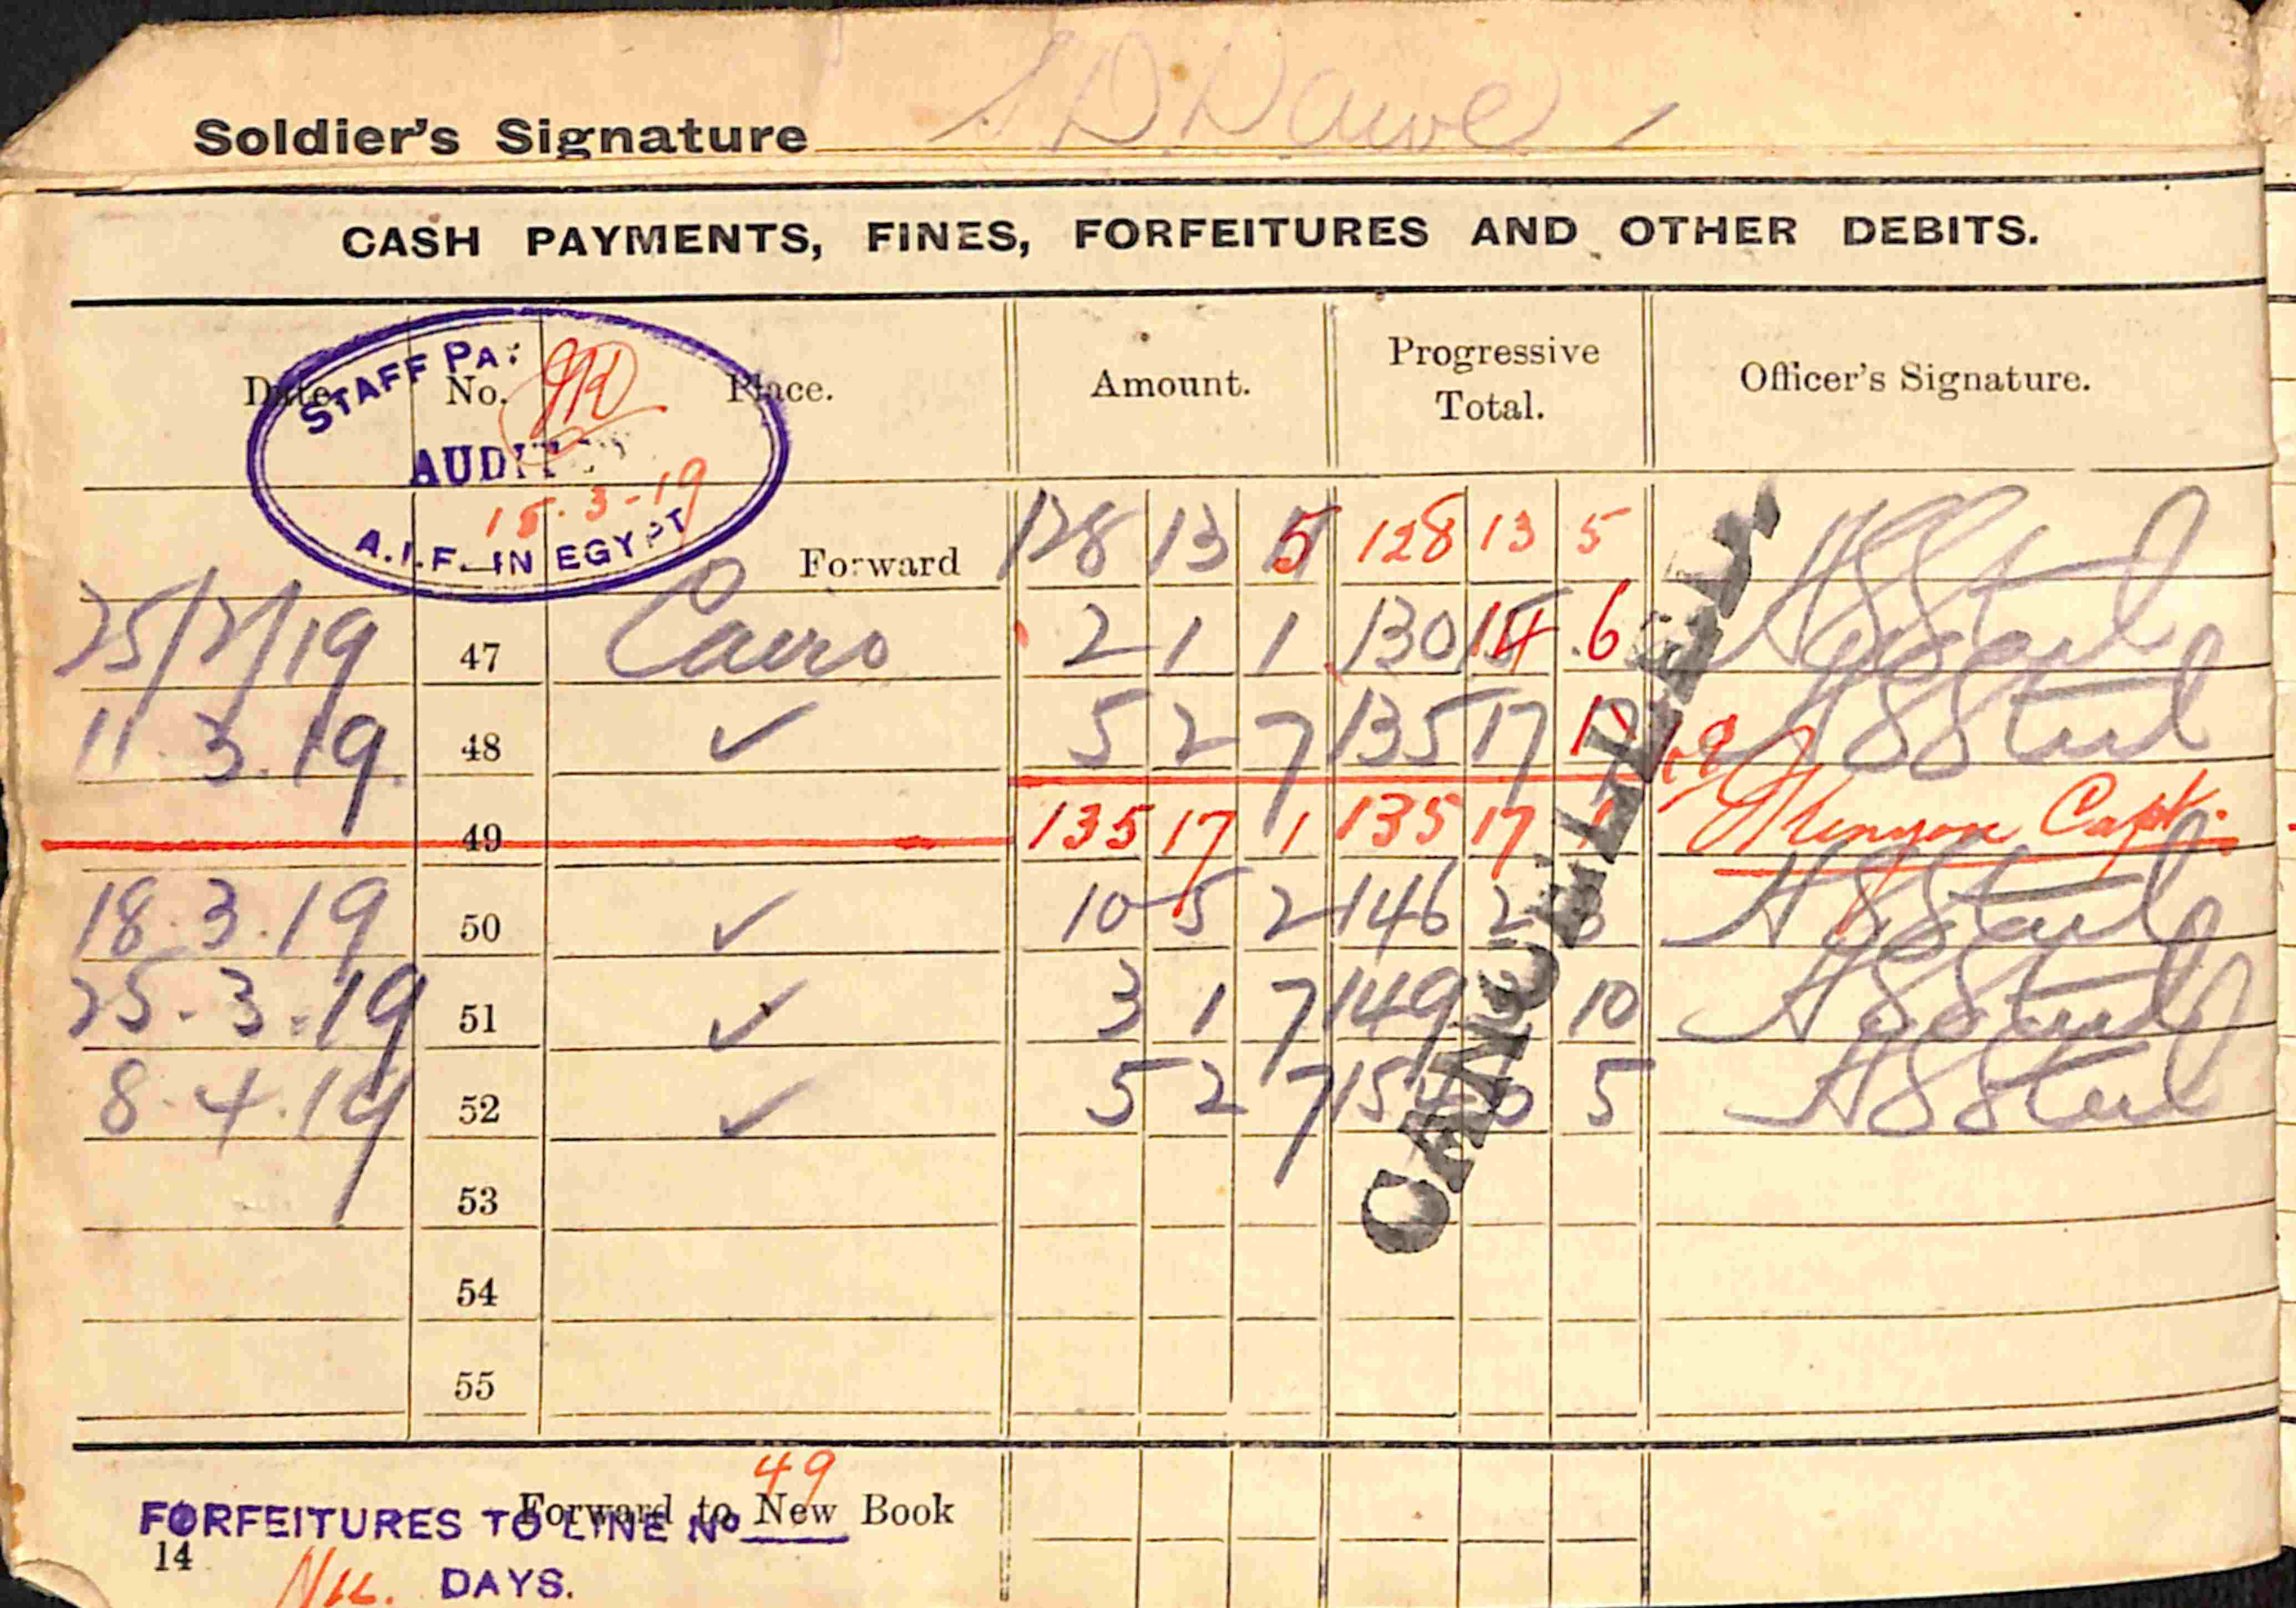 Soldier's Signature S D Dawe
CASH PAYMENTS, FINES, FORFEITURES AND OTHER DEBITS.
Date. No. Place. Amount. Progressive Total. Officer's Signature.
STAFF PAY
AUDIT
15.3-19
A.I.F. IN EGYPT
Forward 128 13 5 128 13 5
25/2/19 47 Cairo 2 1 1 130 14 6
11.3.19. 48 ✓ 5 2 7 135 17 1
49 135 17 1 135 17 1 Capt.
18.3.19 50 ✓ 10 5 2 146 2 3
25.3.19 51 ✓ 3 1 7 149 10
8.4.19 52 ✓ 5 2 7 5
53
54
55
CANCELLED.
Forward to New Book
FORFEITURES TO LINE No 49
14
Nil. DAYS.